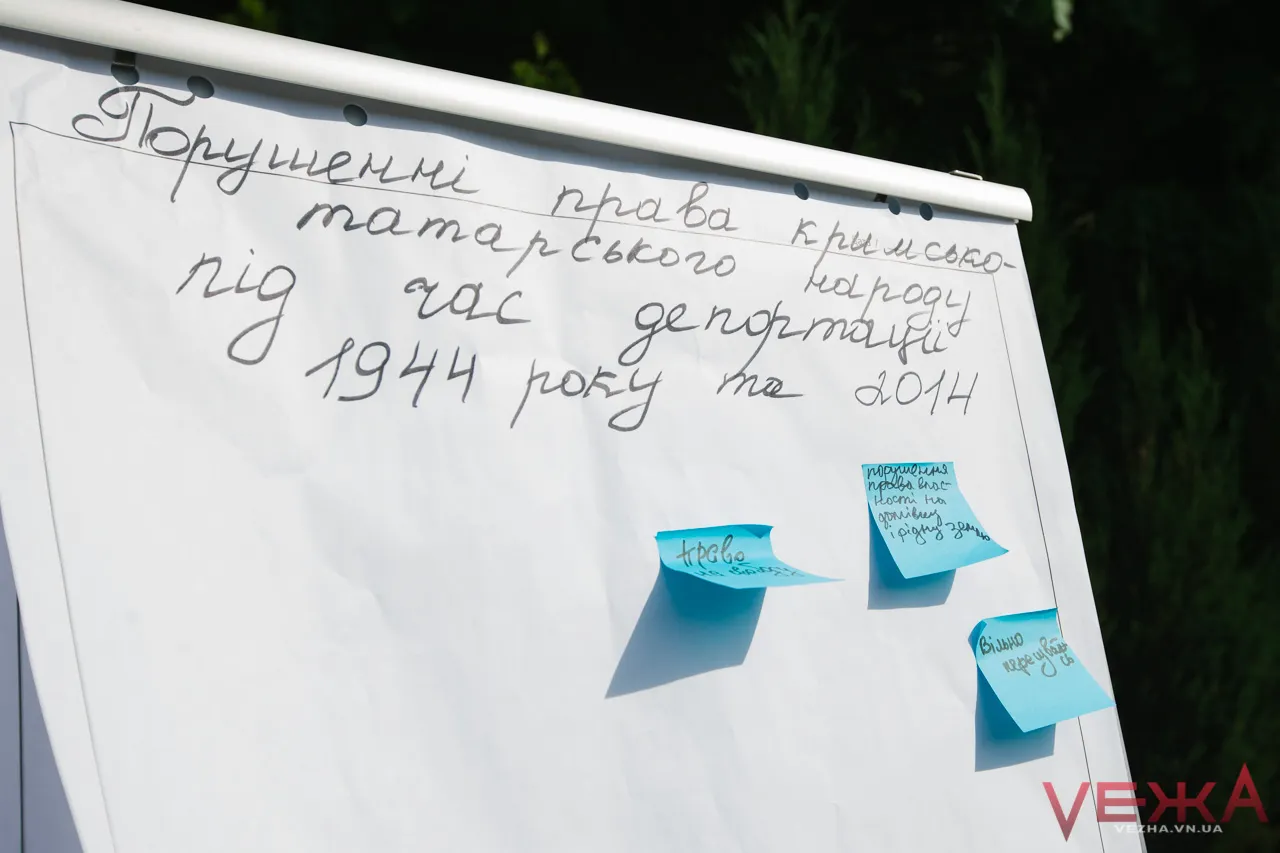 Порушенні права кримсько-
татарського народу
під час депортації
1944 року та 2014
порушення
права влас-
ності на
домівку
і рідну землю
право
на
Вільно
пересувать
сь
VEЖА
VEZHA.VN.UA